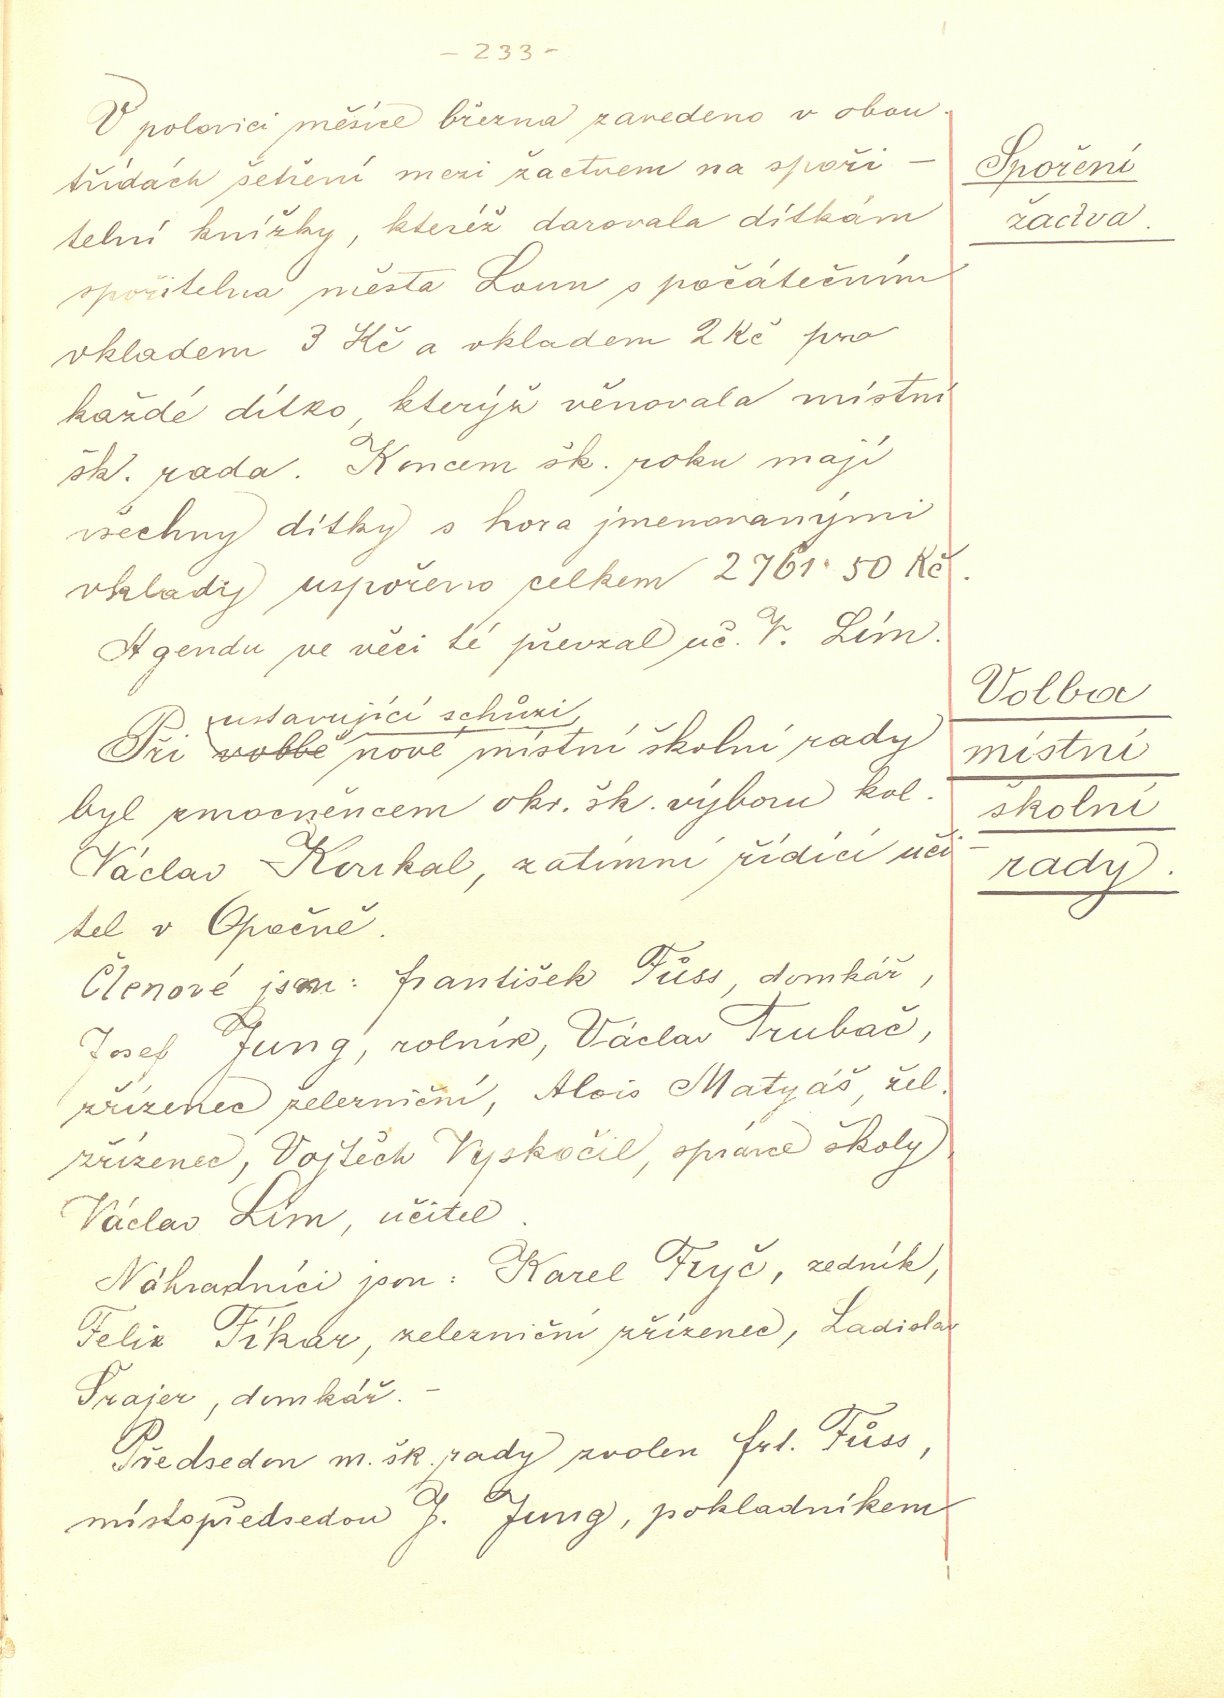 - 233 -
V polovici měsíce března zavedeno v obou
třídách šetření mezi žactvem na spoři -
telní knížky, kteréž darovala dítkám
spořitelna města Loun s počátečním
vkladem 3 Kč a vkladem 2 Kč pro
každé dítko, kterýž věnovala místní
šk. rada. Koncem šk. roku mají
všechny dítky s hora jmenovanými
vklady uspořeno celkem 2761·50 Kč.
Agendu ve věci té převzal uč. V. Lím.
Spoření
žactva.
ustavující schůzi
Při volbě nové místní školní rady
byl zmocněncem okr. šk. výboru kol.
Václav Koukal, zatímní řídící uči-
tel v Opočně.
Členové jsou: František Füss, domkář,
Josef Jung, rolník, Václav Trubač,
zřízenec železniční, Alois Matyáš, žel.
zřízenec, Vojtěch Vyskočil, správce školy
Václav Lím, učitel.
Náhradníci jsou: Karel Fryč, zedník,
Felix Fíkar, železniční zřízenec, Ladislav
Šrajer, domkář. -
Předsedou m. šk. rady zvolen Frt. Füss,
místopředsedou J. Jung, pokladníkem
Volba
místní
školní
rady.